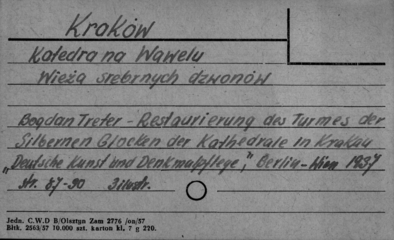 Kraków
Katedra na Wawelu
Wieża srebrnych dzwonów
Bogdan Treter - Restaurierung des Turmes der
Silbernen Glocken der Kathedrale in Krakau
"Deutsche Kunst und Denkmalpflege," Berlin - Wien 1937
str. 87-90 3 ilustr.
Jedn. C.W.D B/Olsztyn Zam 2776 /oa/57
Bitk. 2563/57 10.000 szt. karton kl, 7 g 220.